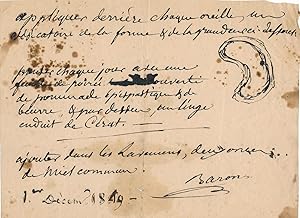 appliquer derrière chaque oreille, un
vésicatoire de la forme & de la grandeur ci-dessous
chaque jour avec une
feuille de poirée
de pommade épispastique & de
beurre, & par dessus, un linge
enduit de Cérat.
ajouter dans les Lavemens, deux onces
de Miel commun.
Baron
1.er Décem. 1849